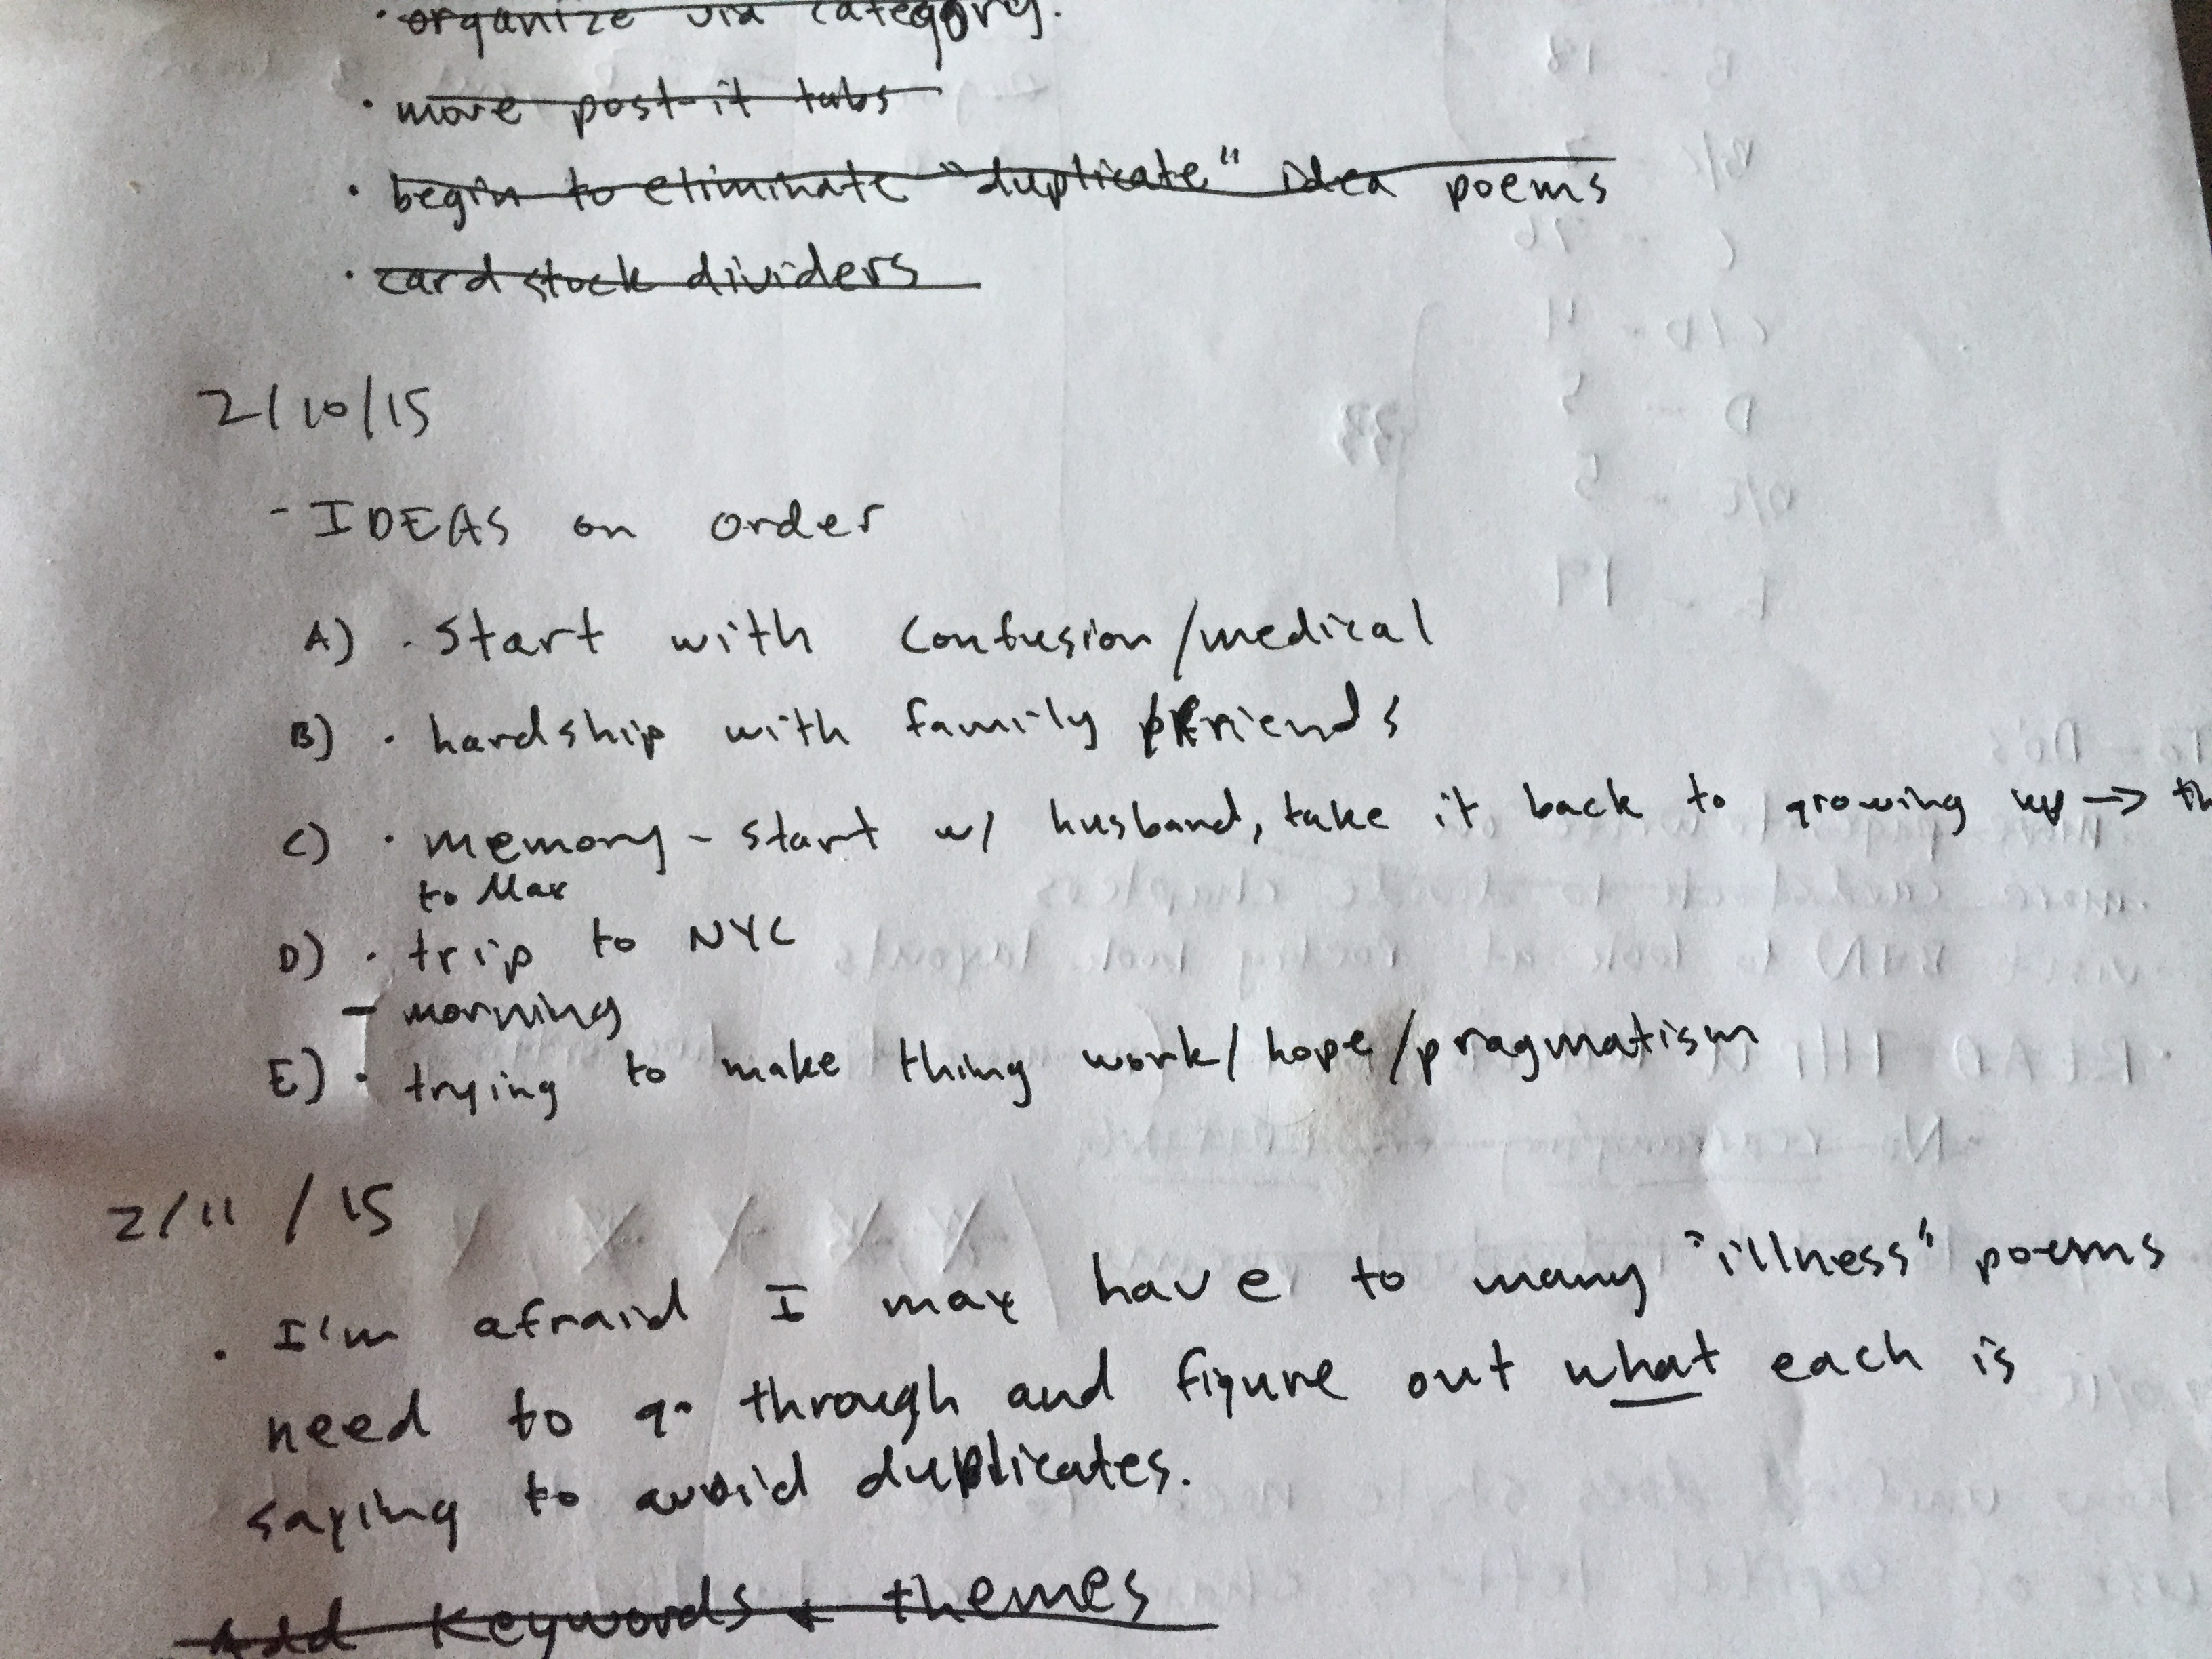 · organize via category.
· move post-it tabs
· begin to eliminate "duplicate" idea poems
· cardstock dividers
2/10/15
- IDEAS on order
A) · Start with confusion/medical
B) · hardship with family /friends
C) · memory - start w/ husband, take it back to growing up → th
to Max
D) · trip to NYC
- morning
E) · trying to make thing work/hope/pragmatism
2/11/15
· I'm afraid I may have to many "illness" poems
need to go through and figure out what each is
saying to avoid duplicates.
Add Keywords + themes